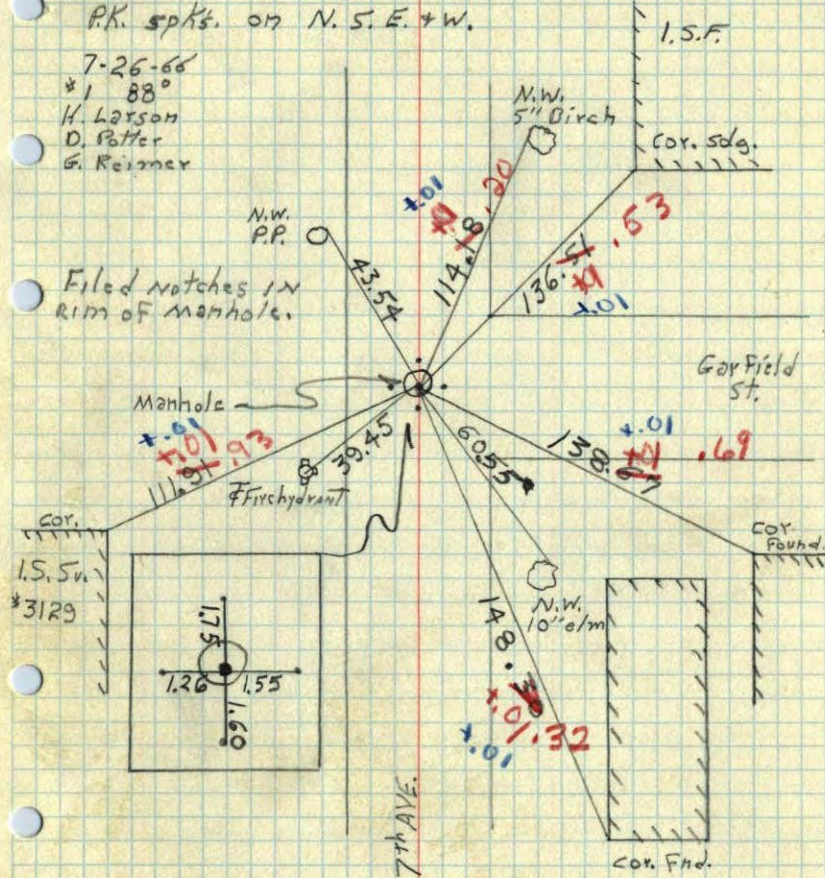 P.K. spks. on N. S. E. & W.
I.S.F.
7-26-66
#1 88°
H. Larson
D. Potter
G. Reimer
N.W.
5" Birch
Cor. Sdg.
N.W.
P.P.
43.54
+.01
+.01
114.18 .20
136.51 .53
+.01
+.01
Filed Notches IN
Rim of Manhole.
Garfield
St.
Manhole
+.01
+.01
111.91 .93
39.45
60.55
+.01
+.01
138.67 .69
℄ Firehydrant
cor.
Cor.
Found.
I.S. Sv.
#3129
N.W.
10" elm
1.75
1.26
1.55
1.60
148.30
+.01 .32
+.01
7th AVE.
Cor. Fnd.